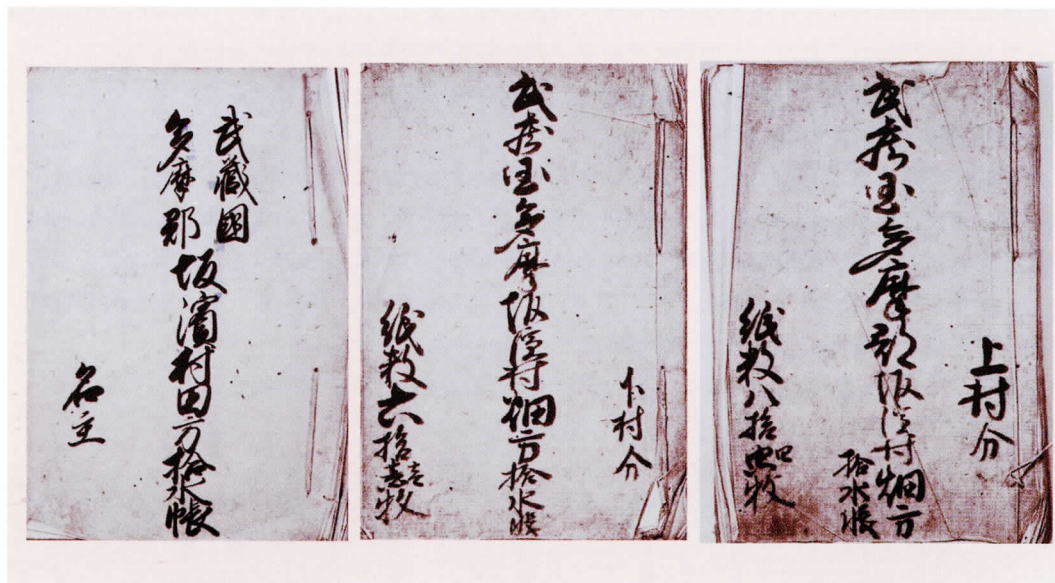 上村分
武蔵国多摩郡坂濱村畑方
拾水帳
紙数八拾枚
下村分
武蔵国多摩坂濱村畑方拾水帳
紙数六拾壱枚
武藏國
多摩郡坂濱村田方拾水帳
名主